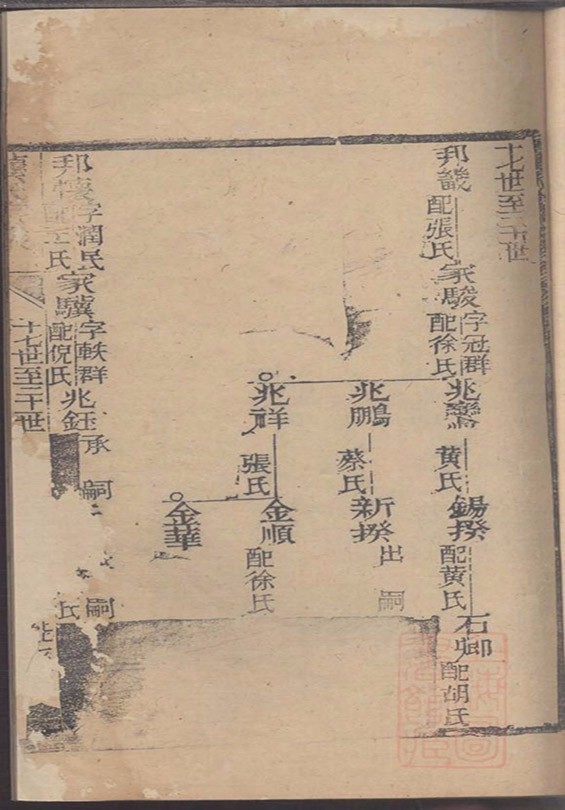 十七世至二十世
邦畿
配張氏
家駿
字冠群
配徐氏
兆鸞
黄氏
錫揆
配黄氏
石卿
配胡氏
兆鵬
蔡氏
新揆
出嗣
兆祥
張氏
金順
配徐氏
金華
邦懷
字潤民
配王氏
家驥
字軼群
配倪氏
兆鈺
承嗣
嗣
氏
十七世至二十世